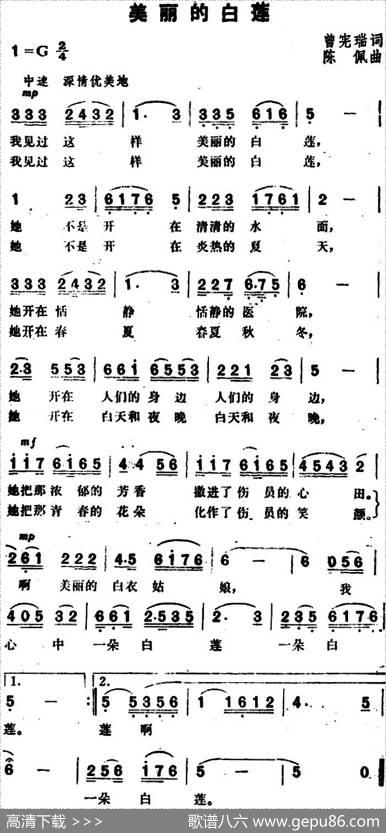 美丽的白莲
1=G 2/4
曾宪瑞词
陈 佩曲
中速 深情优美地
mp
333 2432 | 1·3 | 335 616 | 5 - |
我见过这 样 美丽的白 莲,
我见过这 样 美丽的白 莲,
1 23 | 6176 5 | 223 1761 | 2 - |
她 不是开 在清清的水 面,
她 不是开 在炎热的夏 天,
333 2432 | 1·3 | 227 6·75 | 6 - |
她开在恬 静 恬静的医 院,
她开在春 夏 春夏秋 冬,
2·3 553 | 661 6553 | 221 23 | 5 - |
她 开在 人们的身 边 人们的身 边,
她 开在 白天和夜 晚 白天和夜 晚,
mf
117 6165 | 4 4 56 | 117 6165 | 4543 2 |
她把那浓 郁的芳香 撒进了伤 员的心 田。
她把那青 春的花朵 化作了伤 员的笑 颜。
mp
261 222 | 4·5 6176 | 6 - | 6 056 |
啊 美丽的 白衣姑 娘, 我
405 32 | 661 2·535 | 2·3 | 235 6176 |
心 中 一朵白 莲 一朵白
1. 2.
5 - :|| 5 5356 | 1 1612 | 4· 5 |
莲。 莲啊
6 - | 256 176 | 5 - | 5 0 ||
一朵白 莲。
高清下载 >>> 歌谱八六 www.gepu86.com